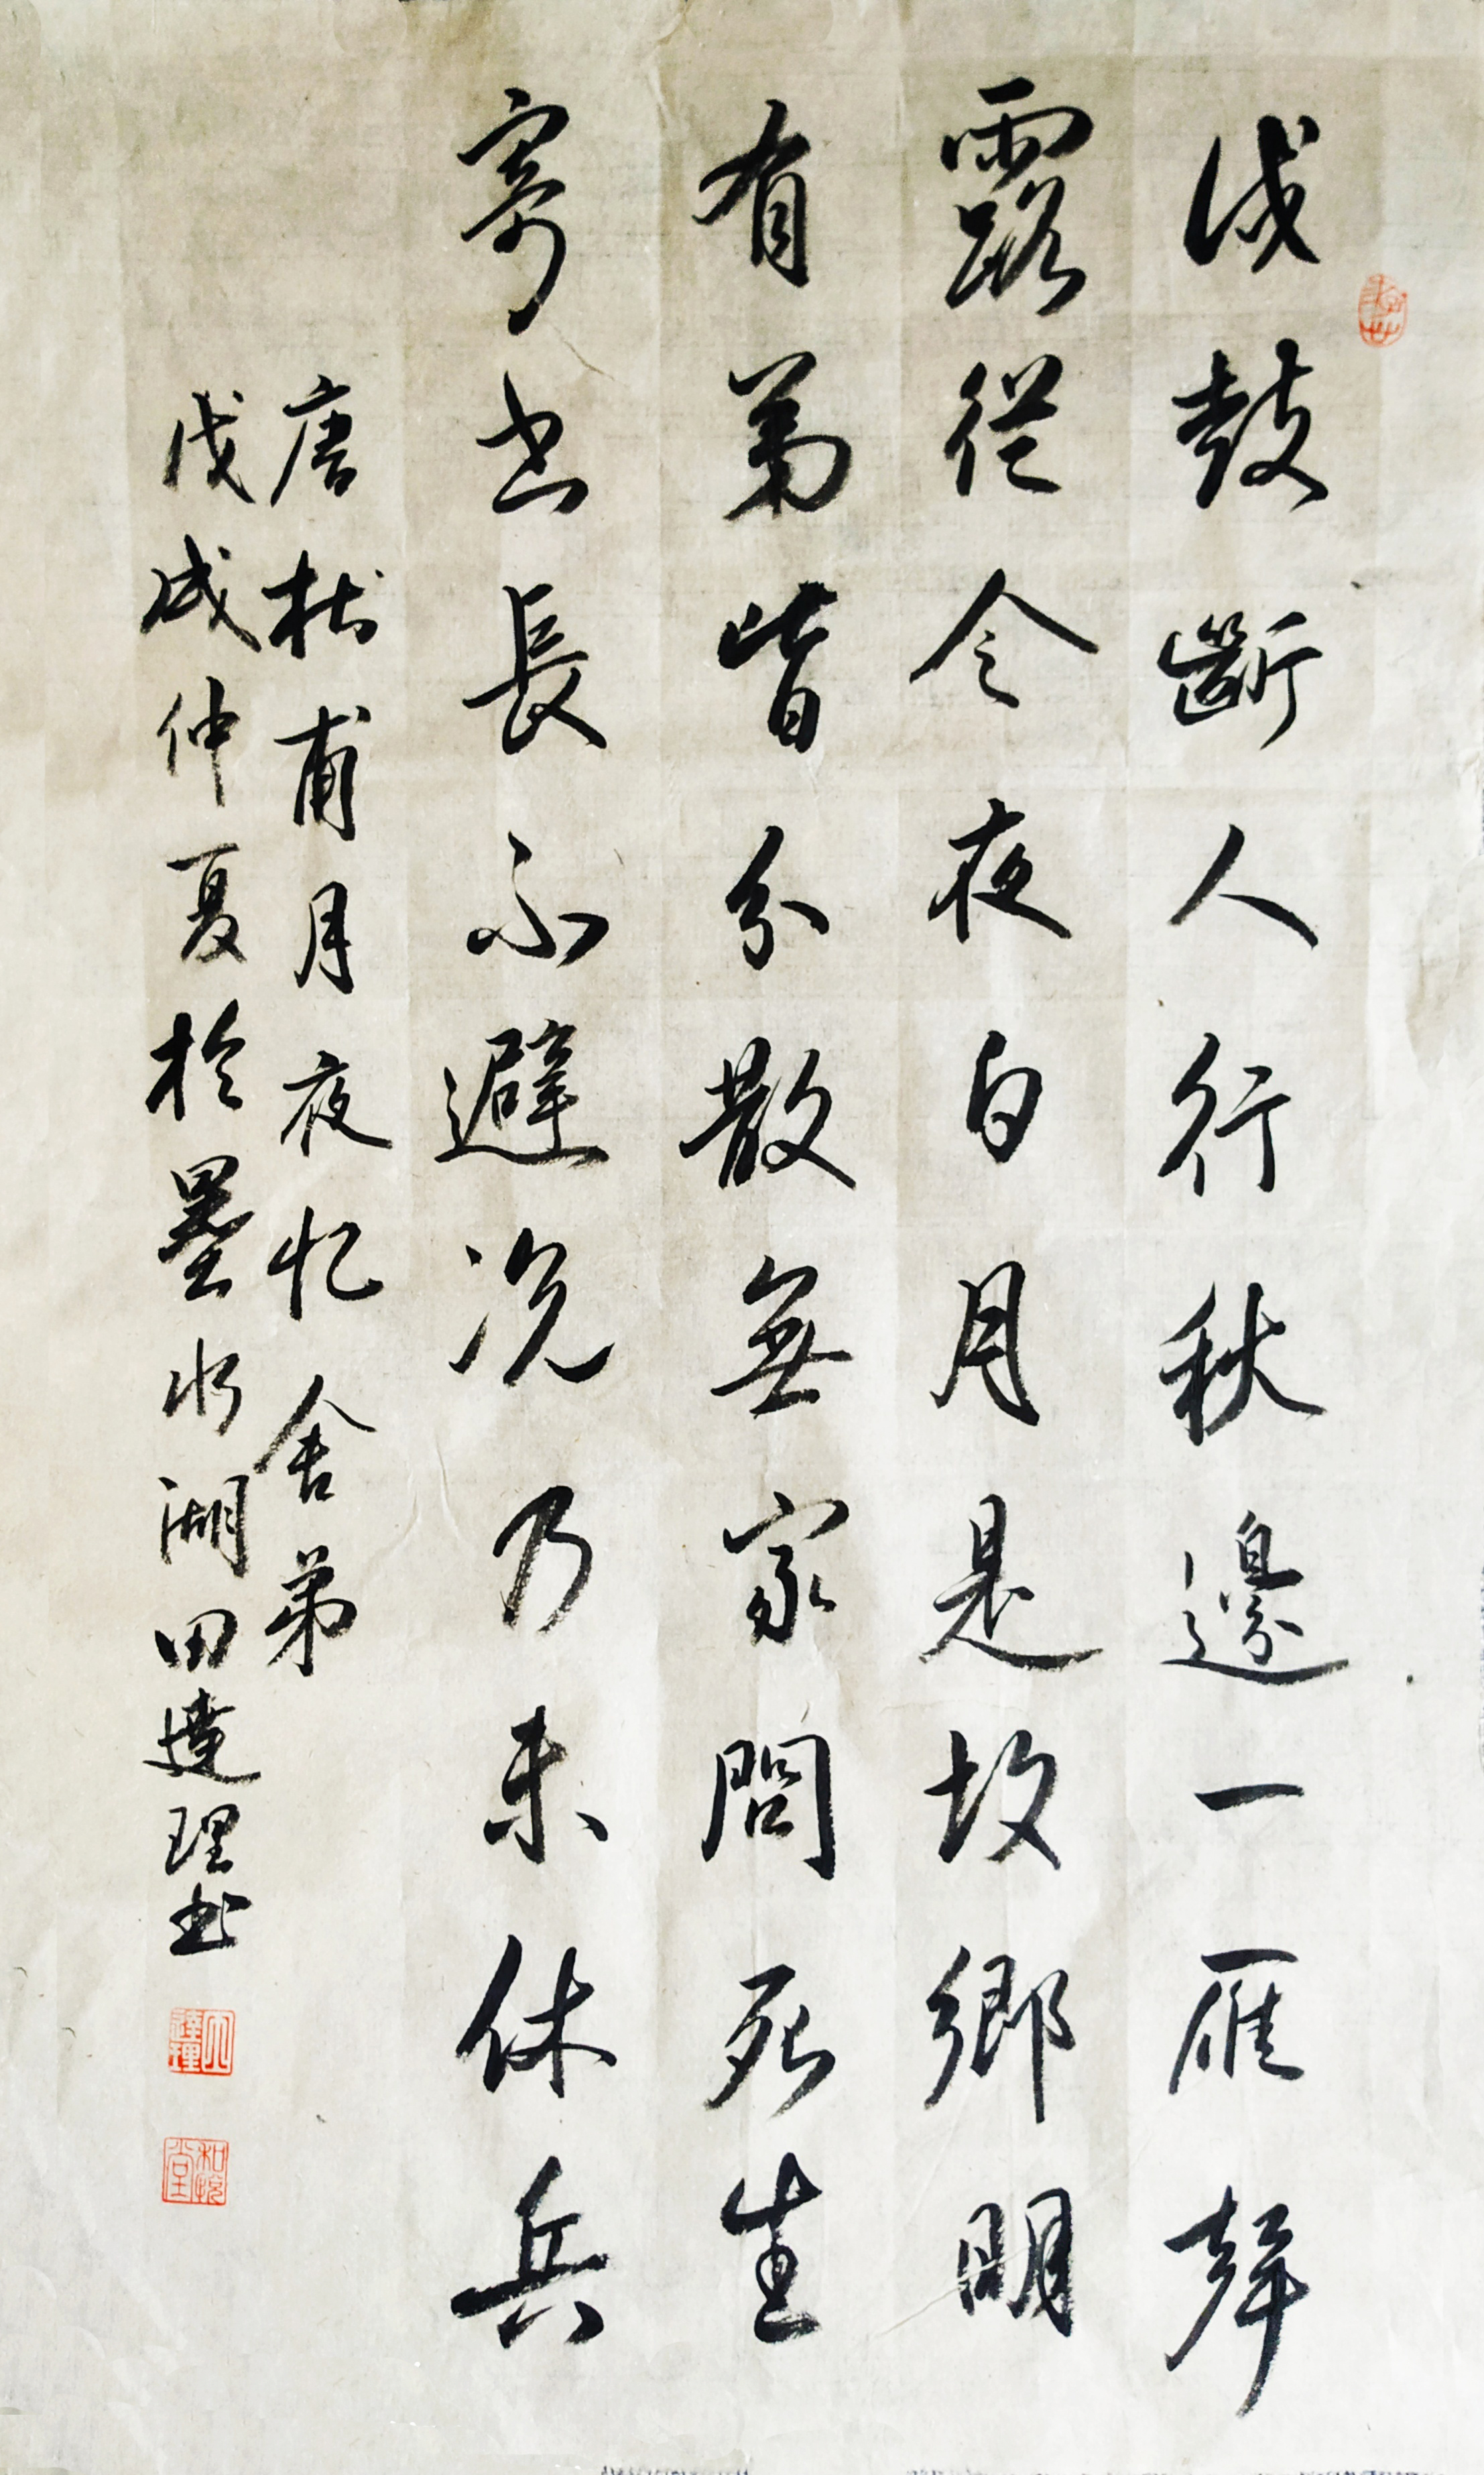 戍鼓斷人行秋邊一雁聲
露從今夜白月是故鄉明
有弟皆分散無家問死生
寄书長不避况乃未休兵
唐杜甫月夜忆舍弟
戊戌仲夏於墨水湖田達理书
和悦堂